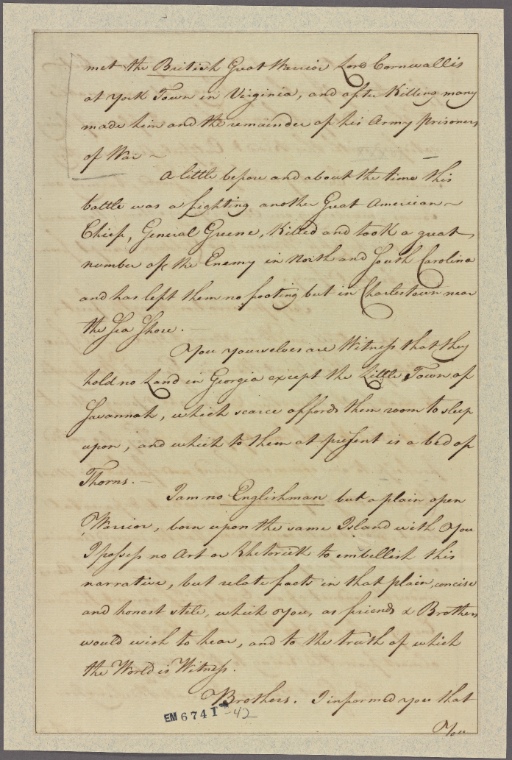 met the British Great Warrior Lord Cornwallis
at York Town in Virginia, and after Killing many
made him and the remainder of his Army Prisoners
of War —
A little before and about the time this
battle was a fighting another Great American
Chief, General Greene, Killed and took a great
number of the Enemy in North and South Carolina
and has left them no footing but in Charlestown near
the Sea Shore.
You yourselves are Witness that they
hold no Land in Georgia except the Little Town of
Savannah, which scarce affords them room to sleep
upon, and which to them at present is a bed of
Thorns. —
I am no Englishman but a plain open
Warrior, born upon the same Island with You
I possess no Art or Rhetorick to embellish this
narrative, but relate facts in that plain, concise
and honest stile, which You, as friends & Brothers
would wish to hear, and to the truth of which
the World is Witness.
Brothers. I informed you that
You
EM 6741 -42